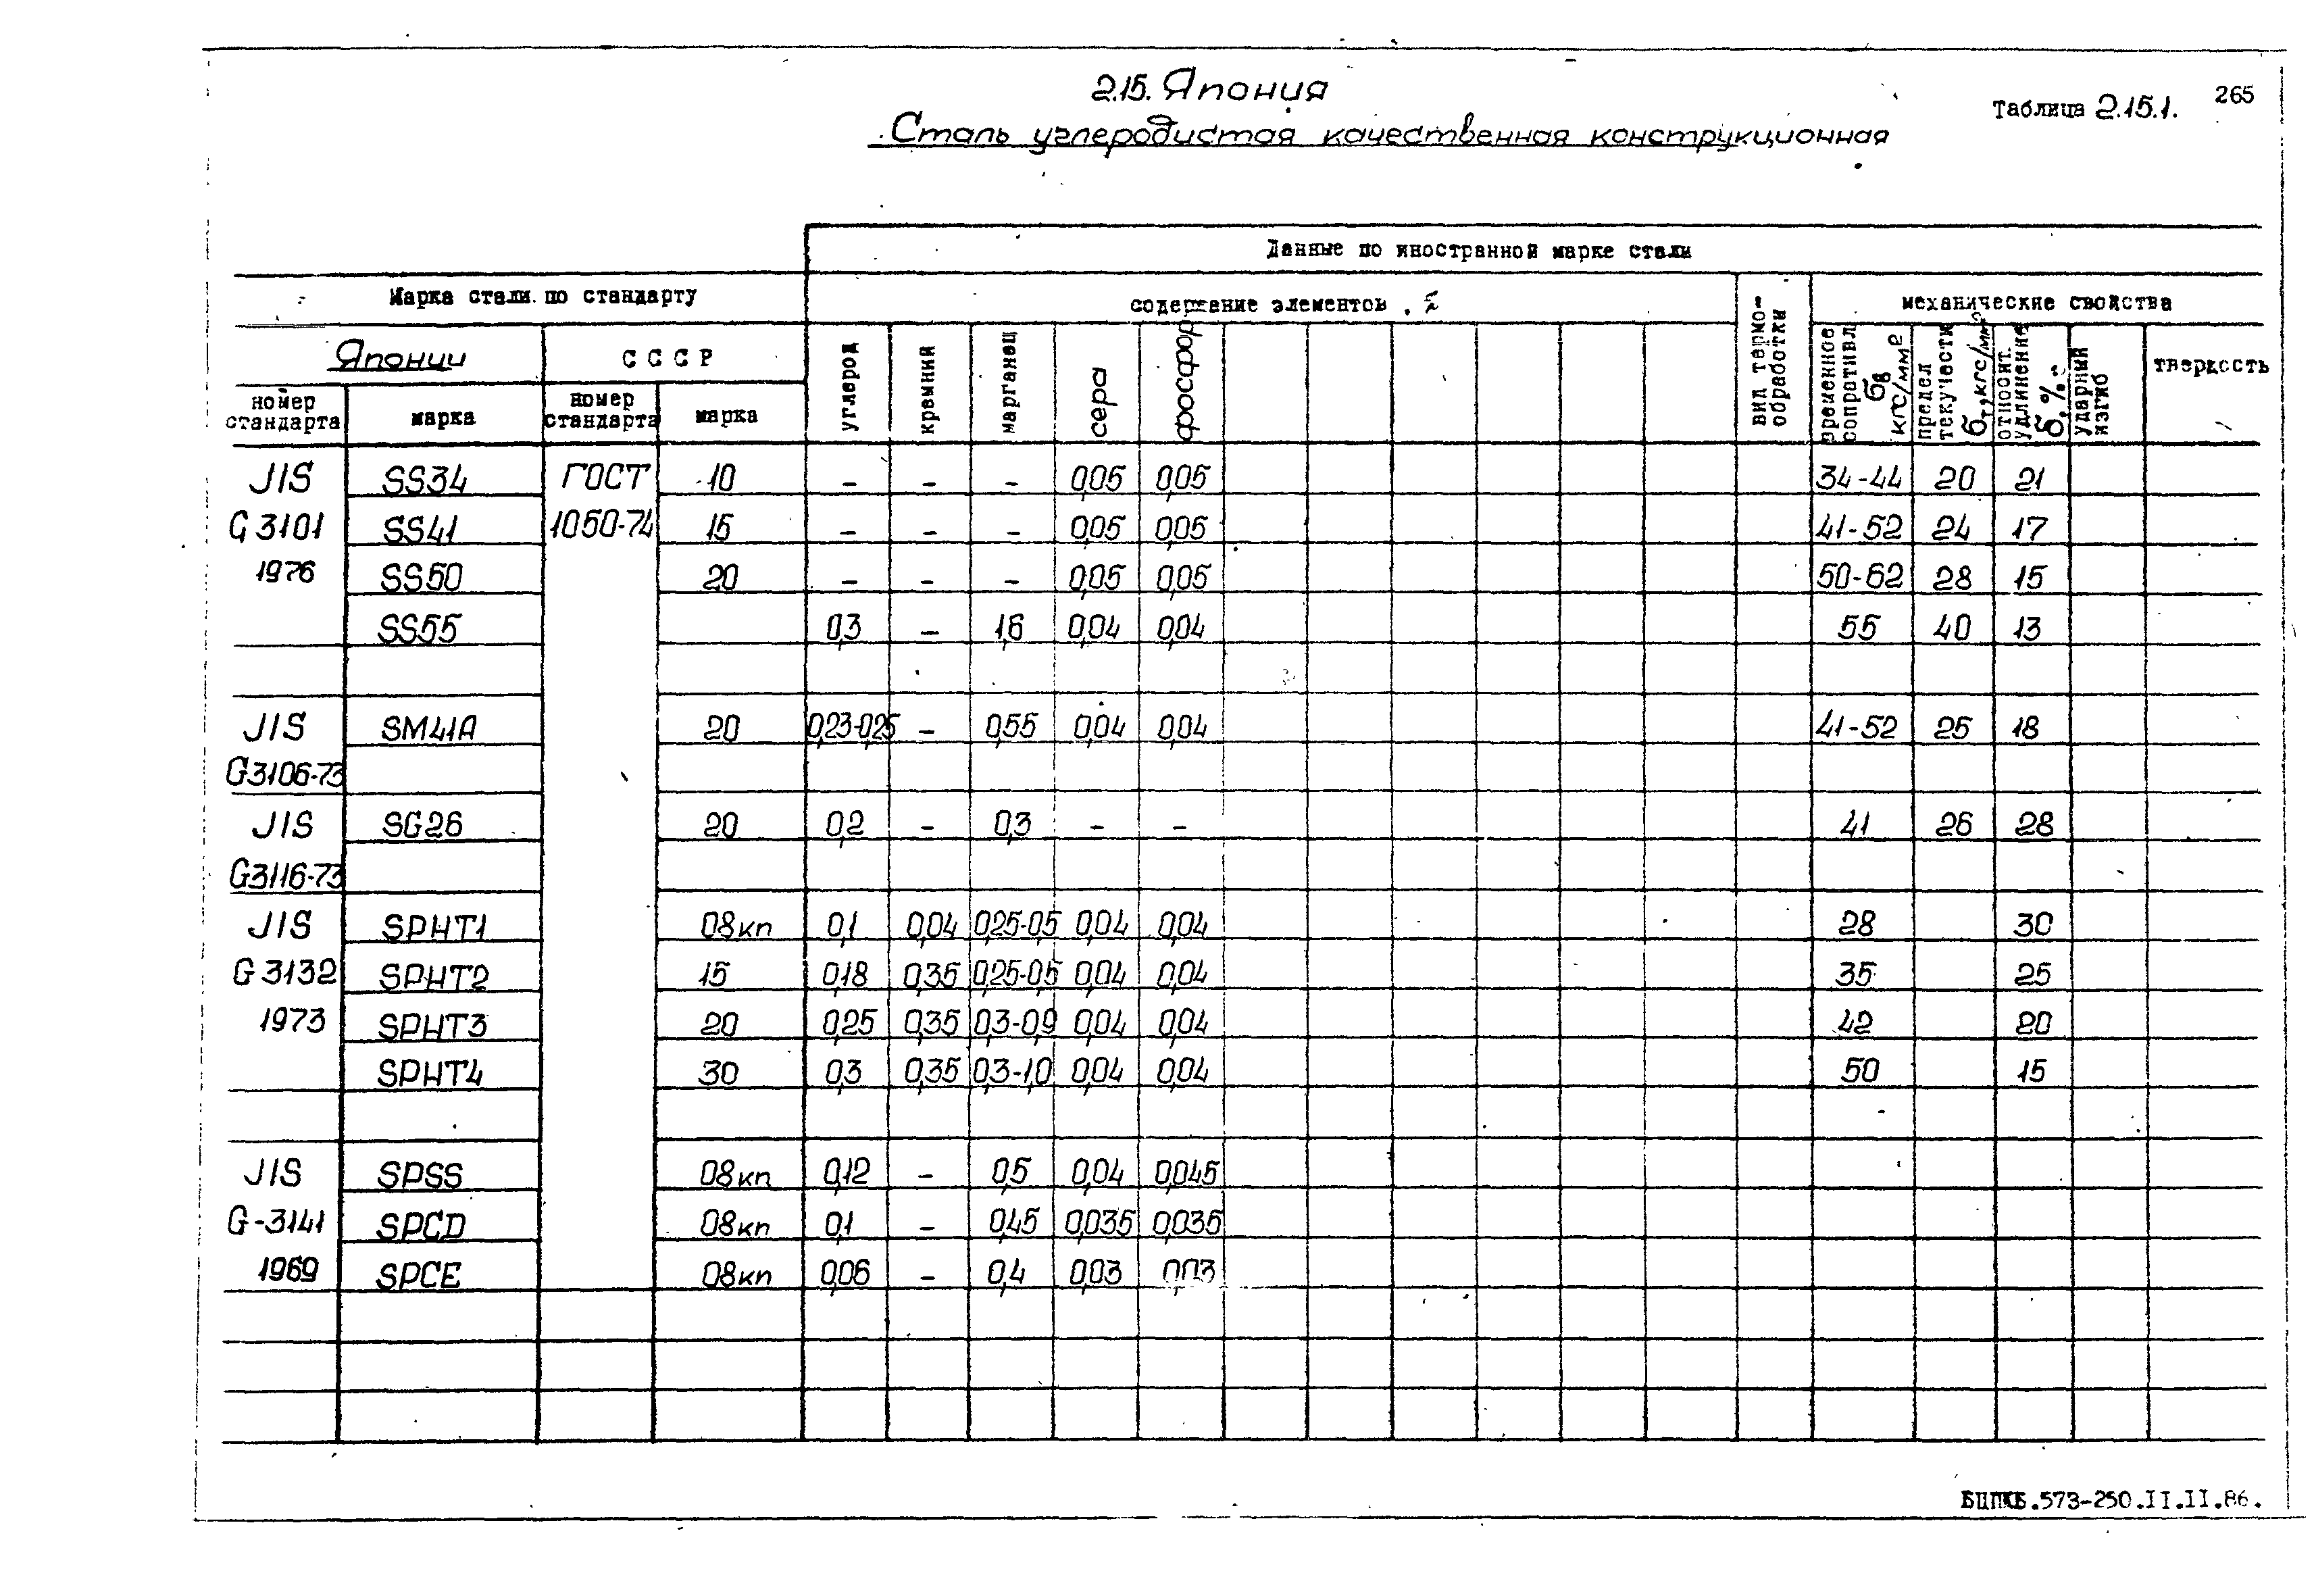 265
2.15. Япония
Таблица 2.15.1.
Сталь углеродистая качественная конструкционная
Данные по иностранной марке стали
Марка стали по стандарту
содержание элементов, %
вид термо-
обработки
механические свойства
Японии
СССР
углерод
кремний
марганец
сера
фосфор
временное
сопротивл
σв
кгс/мм²
предел
текучести
σт, кгс/мм²
относит.
удлинение
δ, %
ударный
изгиб
твердость
номер
стандарта
марка
номер
стандарта
марка
JIS SS34 ГОСТ 10 – – – 0,05 0,05 34-44 20 21
G3101 SS41 1050-74 15 – – – 0,05 0,05 41-52 24 17
1976 SS50 20 – – – 0,05 0,05 50-62 28 15
SS55 0,3 – 1,6 0,04 0,04 55 40 13
JIS SM41A 20 0,23-0,25 – 0,55 0,04 0,04 41-52 25 18
G3106-73
JIS SG26 20 0,2 – 0,3 – – 41 26 28
G3116-73
JIS SPHT1 08кп 0,1 0,04 0,25-0,5 0,04 0,04 28 30
G3132 SPHT2 15 0,18 0,35 0,25-0,5 0,04 0,04 35 25
1973 SPHT3 20 0,25 0,35 0,3-0,9 0,04 0,04 42 20
SPHT4 30 0,3 0,35 0,3-1,0 0,04 0,04 50 15
JIS SPSS 08кп 0,12 – 0,5 0,04 0,045
G-3141 SPCD 08кп 0,1 – 0,45 0,035 0,035
1969 SPCE 08кп 0,06 – 0,4 0,03 0,03
БЦПКБ.573-250.II.II.86.